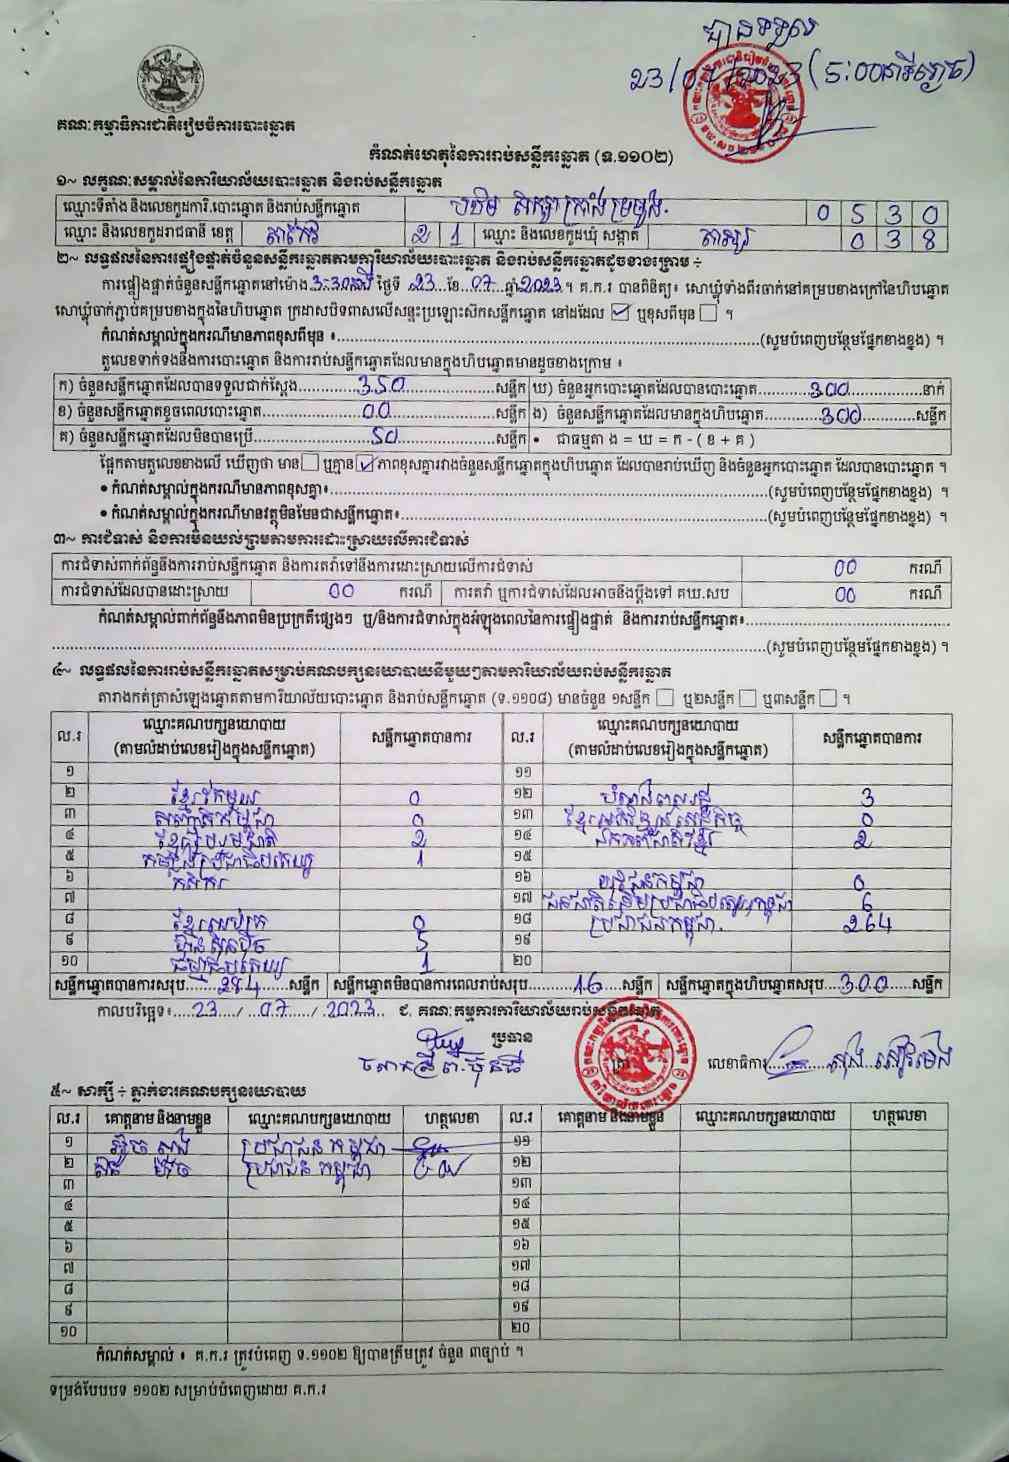 បានទទួល
23/07/2023 (5:00
គណៈកម្មាធិការជាតិរៀបចំការបោះឆ្នោត
កំណត់ហេតុនៃការរាប់សន្លឹកឆ្នោត (ទ.១១០២)
១~ លក្ខណៈសម្គាល់នៃការិយាល័យបោះឆ្នោត និងរាប់សន្លឹកឆ្នោត
ឈ្មោះទីតាំង និងលេខកូដការិ.បោះឆ្នោត និងរាប់សន្លឹកឆ្នោត 0 5 3 0
ឈ្មោះ និងលេខកូដរាជធានី ខេត្ត តាកែវ 2 1 ឈ្មោះ និងលេខកូដឃុំ សង្កាត់ 0 3 8
២~ លទ្ធផលនៃការផ្ទៀងផ្ទាត់ចំនួនសន្លឹកឆ្នោតតាមការិយាល័យបោះឆ្នោត និងរាប់សន្លឹកឆ្នោតដូចខាងក្រោម ÷
ការផ្ទៀងផ្ទាត់ចំនួនសន្លឹកឆ្នោតនៅម៉ោង 3:30 ថ្ងៃទី 23 ខែ 07 ឆ្នាំ 2023 ។ គ.ក.រ បានពិនិត្យ៖ សោឃ្លុំទាំងពីរចាក់នៅគម្របខាងក្រៅនៃហិបឆ្នោត
សោឃ្លុំចាក់ភ្ជាប់គម្របខាងក្នុងនៃហិបឆ្នោត ក្រដាសបិទពាសលើសន្ទះប្រឡោះស៊កសន្លឹកឆ្នោត នៅដដែល ☑ ឬខុសពីមុន ☐ ។
កំណត់សម្គាល់ក្នុងករណីមានភាពខុសពីមុន ៖ (សូមបំពេញបន្ថែមផ្នែកខាងខ្នង) ។
តួលេខទាក់ទងនឹងការបោះឆ្នោត និងការរាប់សន្លឹកឆ្នោតដែលមានក្នុងហិបឆ្នោតមានដូចខាងក្រោម ៖
ក) ចំនួនសន្លឹកឆ្នោតដែលបានទទួលជាក់ស្តែង 350 សន្លឹក ឃ) ចំនួនអ្នកបោះឆ្នោតដែលបានបោះឆ្នោត 300 នាក់
ខ) ចំនួនសន្លឹកឆ្នោតខូចពេលបោះឆ្នោត 00 សន្លឹក ង) ចំនួនសន្លឹកឆ្នោតដែលមានក្នុងហិបឆ្នោត 300 សន្លឹក
គ) ចំនួនសន្លឹកឆ្នោតដែលមិនបានប្រើ 50 សន្លឹក • ជាធម្មតា ង = ឃ = ក - ( ខ + គ )
ផ្អែកតាមតួលេខខាងលើ ឃើញថា មាន ☐ ឬគ្មាន ☑ ភាពខុសគ្នារវាងចំនួនសន្លឹកឆ្នោតក្នុងហិបឆ្នោត ដែលបានរាប់ឃើញ និងចំនួនអ្នកបោះឆ្នោត ដែលបានបោះឆ្នោត ។
• កំណត់សម្គាល់ក្នុងករណីមានភាពខុសគ្នា៖ (សូមបំពេញបន្ថែមផ្នែកខាងខ្នង) ។
• កំណត់សម្គាល់ក្នុងករណីមានវត្ថុមិនមែនជាសន្លឹកឆ្នោត៖ (សូមបំពេញបន្ថែមផ្នែកខាងខ្នង) ។
៣~ ការជំទាស់ និងការមិនយល់ព្រមតាមការដោះស្រាយលើការជំទាស់
ការជំទាស់ពាក់ព័ន្ធនឹងការរាប់សន្លឹកឆ្នោត និងការតវ៉ាទៅនឹងការដោះស្រាយលើការជំទាស់ 00 ករណី
ការជំទាស់ដែលបានដោះស្រាយ 00 ករណី ការតវ៉ា ឬការជំទាស់ដែលអាចនឹងប្តឹងទៅ គឃ.សប 00 ករណី
កំណត់សម្គាល់ពាក់ព័ន្ធនឹងភាពមិនប្រក្រតីផ្សេងៗ ឬ/និងការជំទាស់ក្នុងអំឡុងពេលនៃការផ្ទៀងផ្ទាត់ និងការរាប់សន្លឹកឆ្នោត៖
(សូមបំពេញបន្ថែមផ្នែកខាងខ្នង) ។
៤~ លទ្ធផលនៃការរាប់សន្លឹកឆ្នោតសម្រាប់គណបក្សនយោបាយនីមួយៗតាមការិយាល័យរាប់សន្លឹកឆ្នោត
តារាងកត់ត្រាសំឡេងឆ្នោតតាមការិយាល័យបោះឆ្នោត និងរាប់សន្លឹកឆ្នោត (ទ.១១០៨) មានចំនួន ១សន្លឹក ☐ ឬ២សន្លឹក ☐ ឬ៣សន្លឹក ☐ ។
ល.រ ឈ្មោះគណបក្សនយោបាយ (តាមលំដាប់លេខរៀងក្នុងសន្លឹកឆ្នោត) សន្លឹកឆ្នោតបានការ ល.រ ឈ្មោះគណបក្សនយោបាយ (តាមលំដាប់លេខរៀងក្នុងសន្លឹកឆ្នោត) សន្លឹកឆ្នោតបានការ
១ ១១
២ 0 ១២ 3
៣ 0 ១៣ 0
៤ 2 ១៤ ឯកភាពជាតិខ្មែរ 2
៥ 1 ១៥
៦ កសិករ ១៦ 0
៧ ១៧ 6
៨ 0 ១៨ ប្រជាជនកម្ពុជា 264
៩ 5 ១៩
១០ ធម្មាធិបតេយ្យ 1 ២០
សន្លឹកឆ្នោតបានការសរុប 284 សន្លឹក សន្លឹកឆ្នោតមិនបានការពេលរាប់សរុប 16 សន្លឹក សន្លឹកឆ្នោតក្នុងហិបឆ្នោតសរុប 300 សន្លឹក
កាលបរិច្ឆេទ៖ 23 / 07 / 2023 ជ. គណៈកម្មការការិយាល័យរាប់សន្លឹកឆ្នោត
ប្រធាន លេខាធិការ
៥~ សាក្សី ÷ ភ្នាក់ងារគណបក្សនយោបាយ
ល.រ គោត្តនាម និងនាមខ្លួន ឈ្មោះគណបក្សនយោបាយ ហត្ថលេខា ល.រ គោត្តនាម និងនាមខ្លួន ឈ្មោះគណបក្សនយោបាយ ហត្ថលេខា
១ ប្រជាជនកម្ពុជា ១១
២ ប្រជាជនកម្ពុជា ១២
៣ ១៣
៤ ១៤
៥ ១៥
៦ ១៦
៧ ១៧
៨ ១៨
៩ ១៩
១០ ២០
កំណត់សម្គាល់ ៖ គ.ក.រ ត្រូវបំពេញ ទ.១១០២ ឱ្យបានត្រឹមត្រូវ ចំនួន ៣ច្បាប់ ។
ទម្រង់បែបបទ ១១០២ សម្រាប់បំពេញដោយ គ.ក.រ